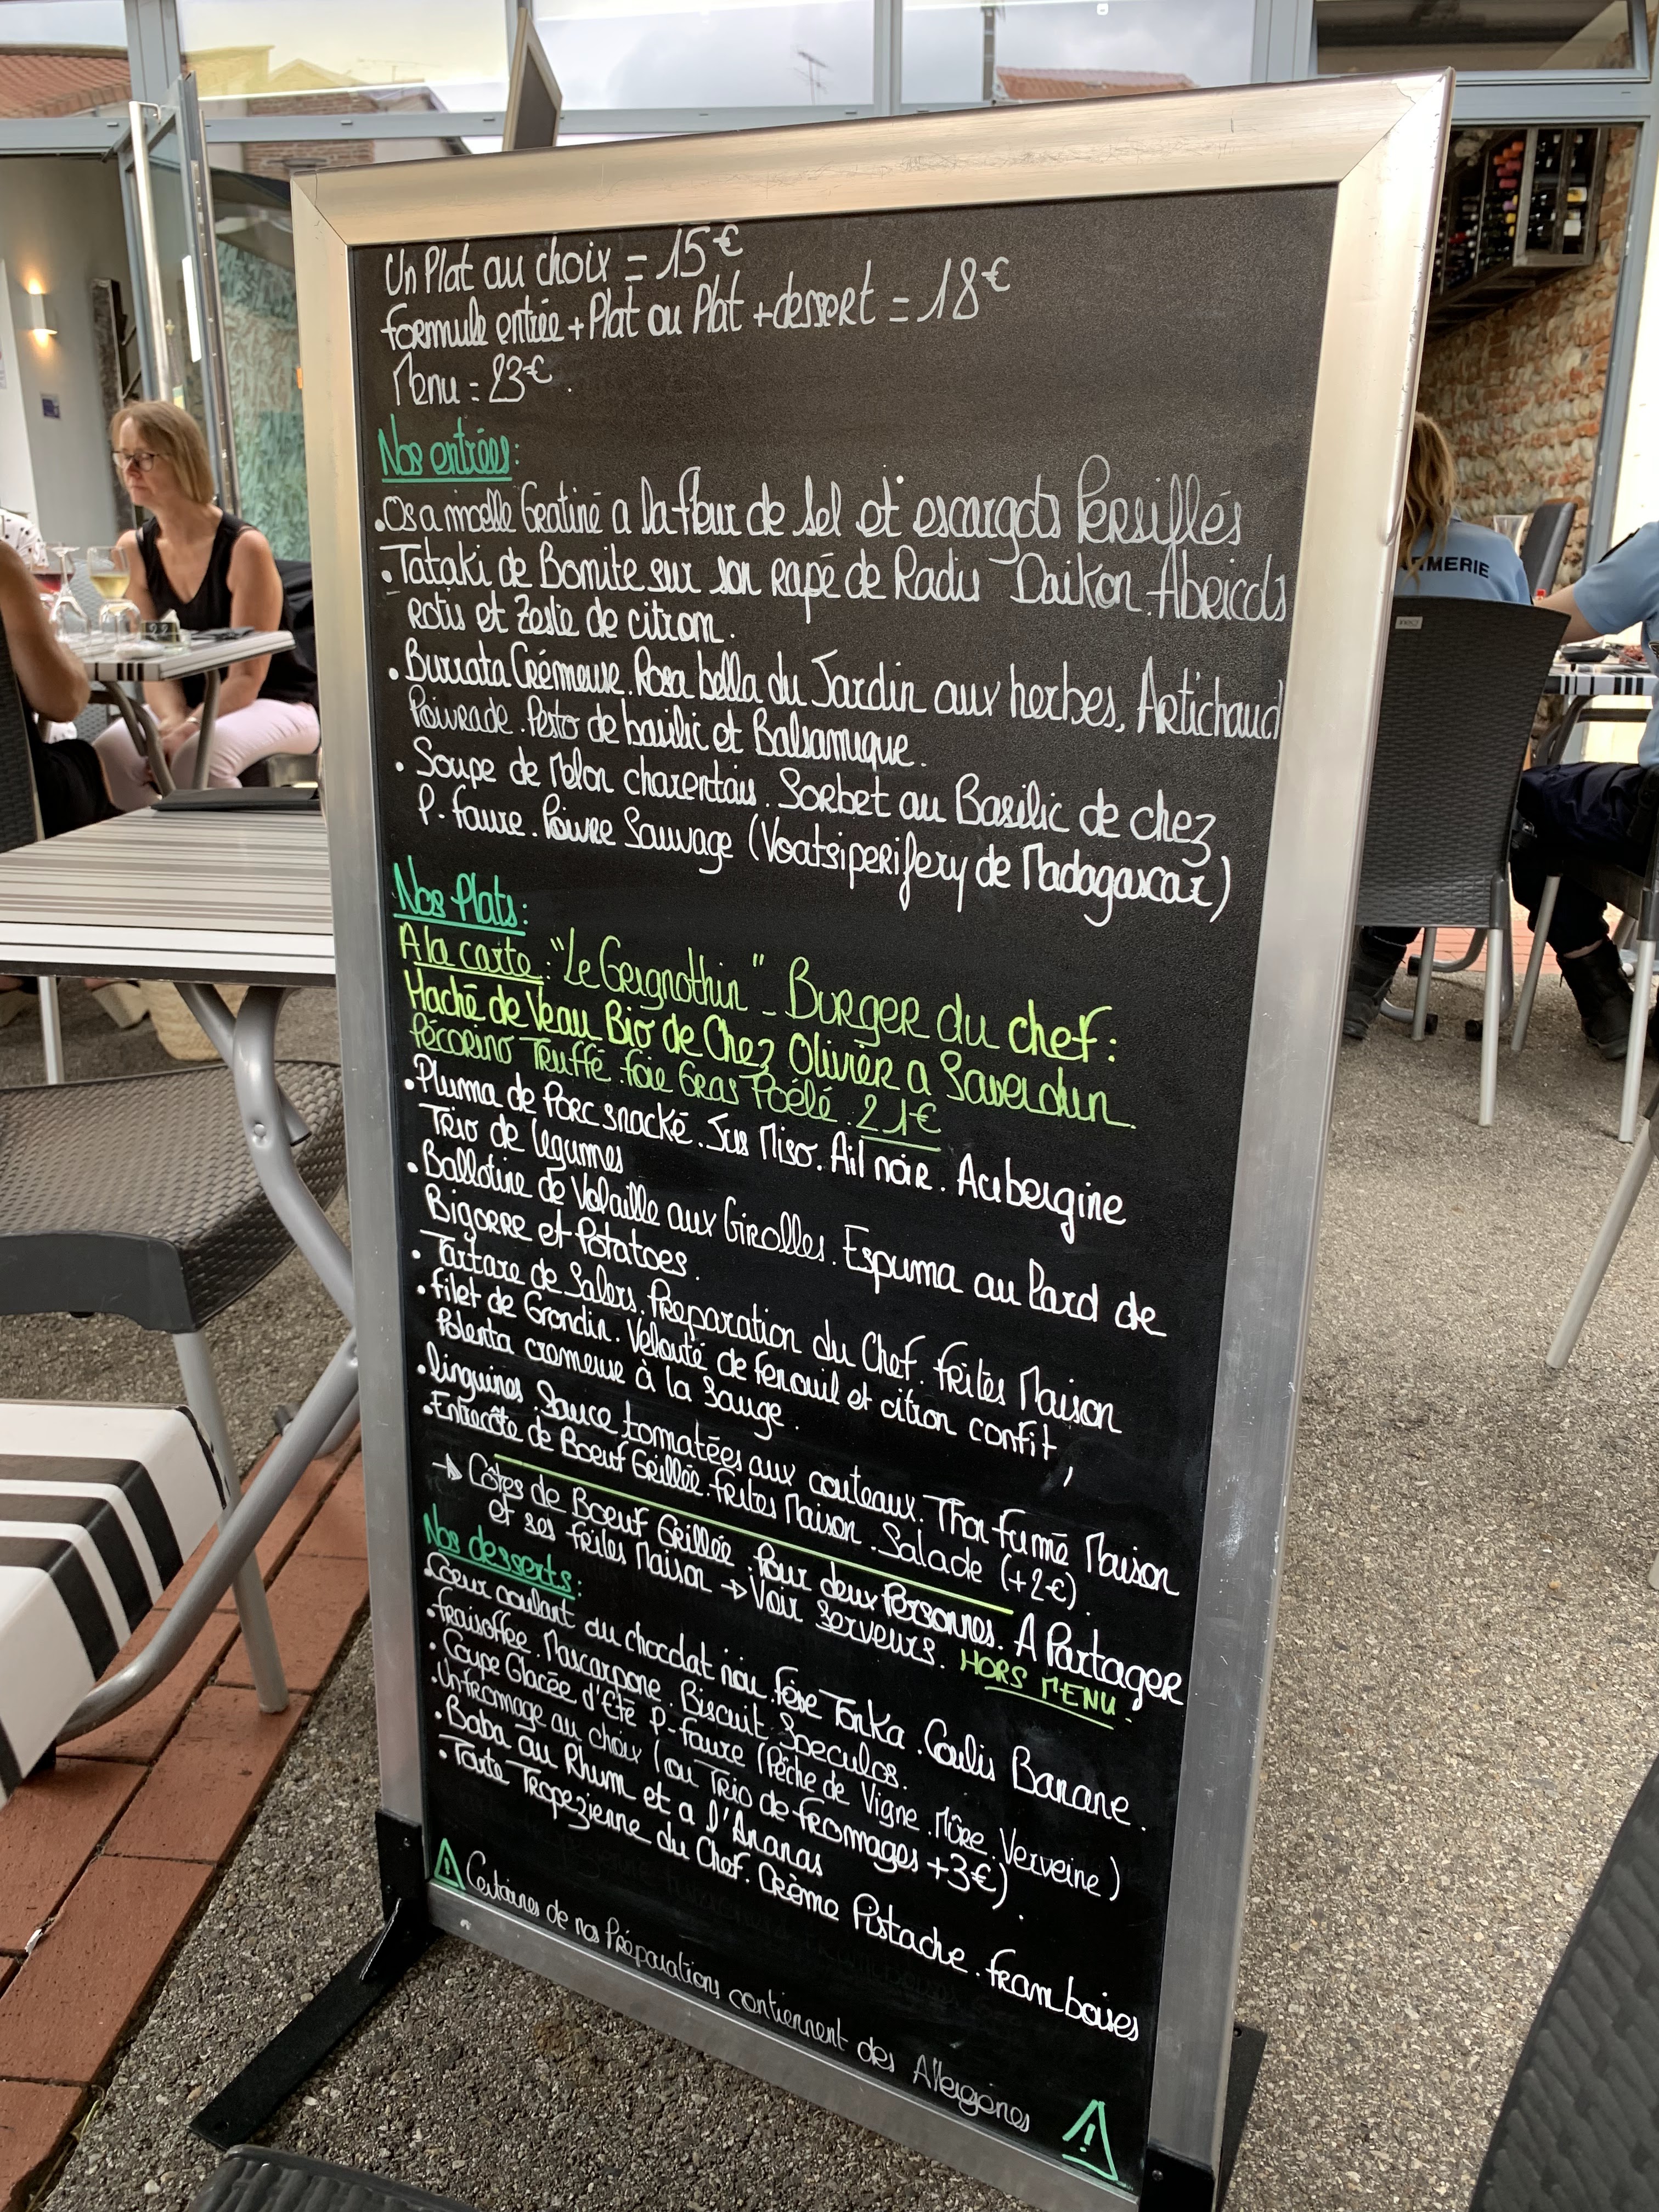 Un Plat au choix = 15€
formule entrée + Plat ou Plat + dessert = 18€
Menu = 23€.
Nos entrées:
. Os a moelle Gratiné a la fleur de Sel et escargots Persillés
. Tataki de Bonite sur son rapé de Radis Daikon. Abricots
rotis et Zeste de citron.
. Burrata Crémeuse. Rosa bella du Jardin aux herbes, Artichaud
Poivrade. Pesto de basilic et Balsamique.
. Soupe de Melon charentais. Sorbet au Basilic de chez
P. Faure. Poivre Sauvage (Voatsiperifery de Madagascar)
Nos Plats:
A la carte: "Le Grignothin" - Burger du chef:
Haché de Veau Bio de Chez Olivier a Saverdun.
Pécorino Truffé. foie Gras Poélé. 21€
. Pluma de Porc snacké. Jus Miso. Ail noir. Aubergine
Trio de légumes
. Ballotine de Volaille aux Girolles. Espuma au Lard de
Bigorre et Potatoes.
. Tartare de Salers. Préparation du Chef. frites Maison
. filet de Grondin. Velouté de fenouil et citron confit,
Polenta cremeuse à la Sauge.
. linguines. Sauce tomatées aux couteaux. Thon fumé Maison
. Entrecôte de Boeuf Grillée. frites Maison. Salade (+2€).
→ Côtes de Boeuf Grillée. Pour deux Personnes. A Partager
et ses frites Maison → Voir Serveurs. HORS MENU.
Nos desserts:
. Coeur coulant au chocolat noir. Fève Tonka. Coulis Banane.
. fraisoffee. Mascarpone. Biscuit Speculos.
. Coupe Glacée d'Eté P-Faure (Pêche de Vigne. Mûre. Verveine)
. Un fromage au choix (ou Trio de fromages +3€).
. Baba au Rhum et a l'Ananas
. Tarte Tropezienne du Chef. Crème Pistache. framboises
! Certaines de nos Préparations contiennent des Allergenes !
ARMERIE